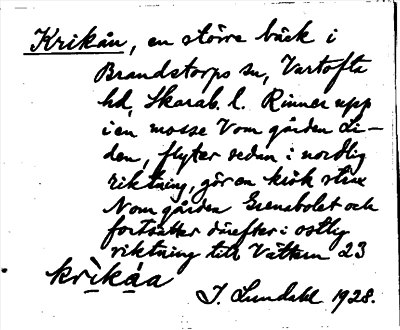 Krikån, en större bäck i
Brandstorps sn, Vartofta
hd, Skarab. l. Rinner upp
i en mosse V om gården Li-
den, flyter sedan i nordlig
riktning, gör en krök strax
N om gården Grenabolet och
fortsätter därefter i ostlig
riktning till Vättern 23
krìkå̀a
J. Lundahl 1928.